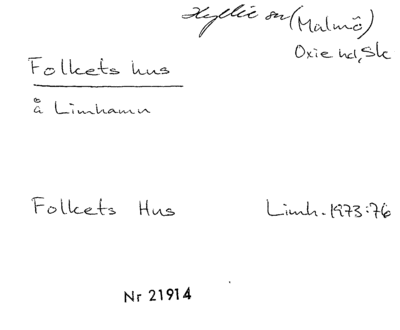 Hyllie sn (Malmö)
Oxie hd, Sk
Folkets hus
å Limhamn
Folkets Hus Limh. 1973:76
Nr 21914